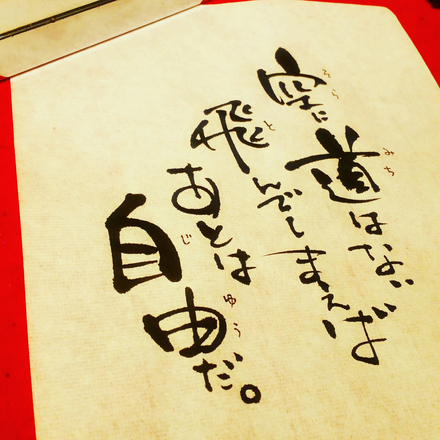 空に
道はない
飛んでしまえば
あとは
自由だ。
そら
みち
と
じ
ゆう